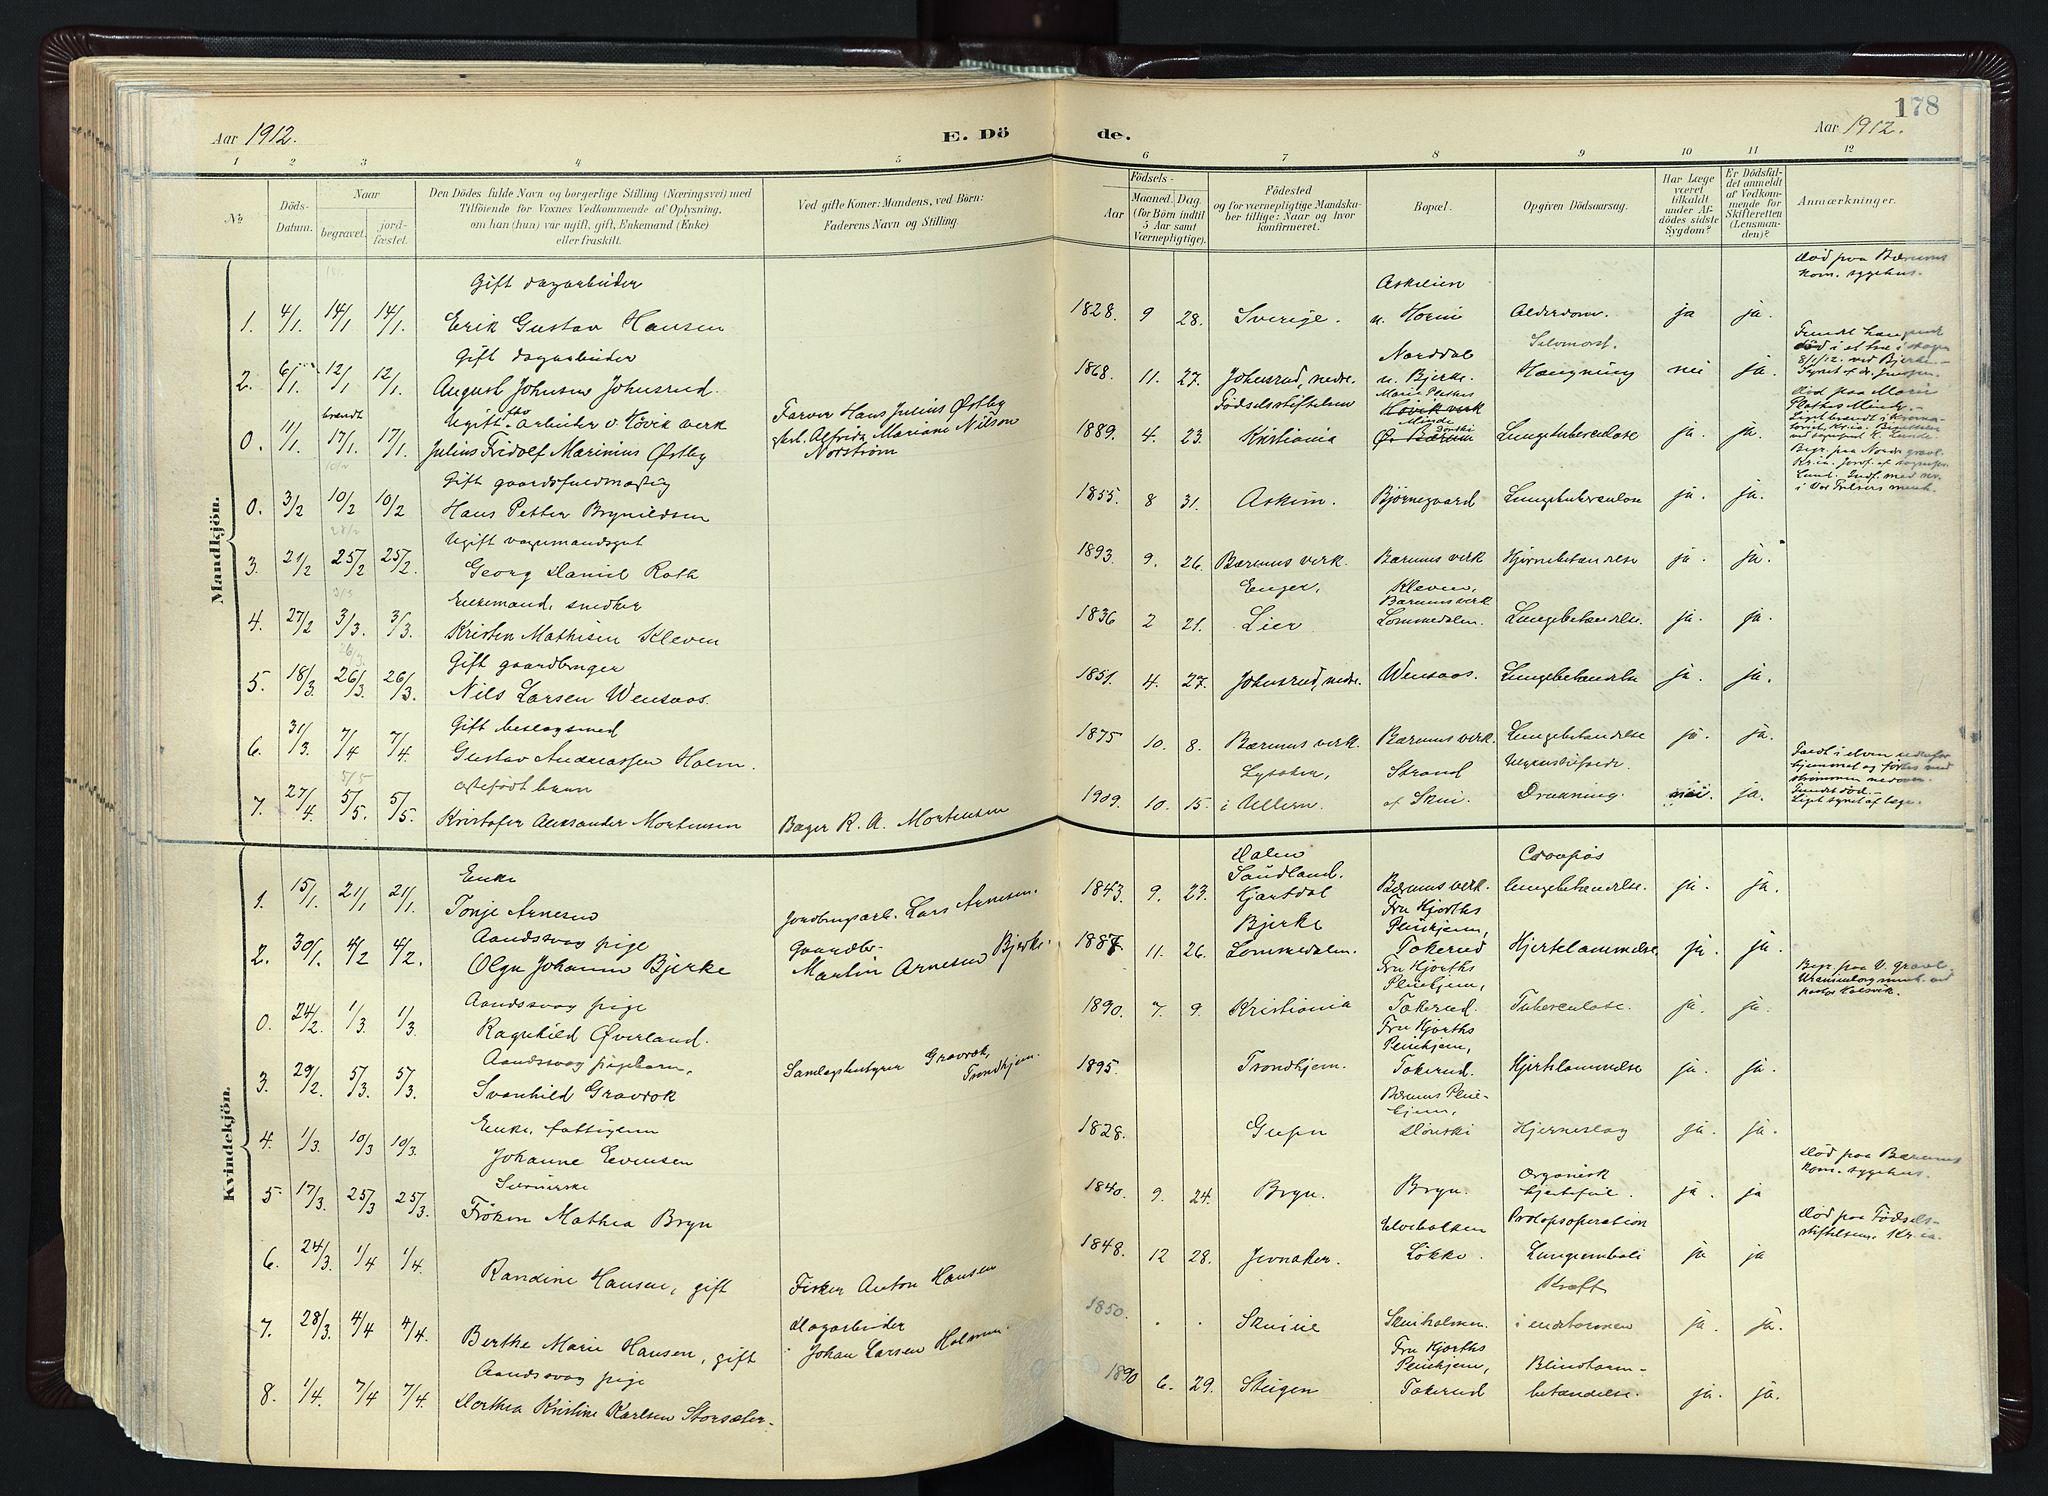 178
Aar 1912. E. Dö de. Aar 1912.
1 2 3 4 5 6 7 8 9 10 11 12
No. Döds-Datum. Naar begravet. jordfæstet. Den Dödes fulde Navn og borgerlige Stilling (Næringsvei) med Tilföiende for Voxnes Vedkommende af Oplysning, om han (hun) var ugift, gift, Enkemand (Enke) eller fraskilt. Ved gifte Koner: Mandens, ved Börn: Faderens Navn og Stilling. Födsels- Aar Maaned. Dag. (for Börn indtil 5 Aar samt Værnepligtige). Födested og for værnepligtige Mandskaber tillige: Naar og hvor konfirmeret. Bopæl. Opgiven Dödsaarsag. Har Læge været tilkaldt under Afdödes sidste Sygdom? Er Dödsfaldet anmeldt af Vedkommende for Skifteretten (Lensmanden)? Anmærkninger.
Mandkjön.
Gift dagarbeider Askelien Död paa Bærums kom. sygehus.
1. 4/1. 14/1 14/1. Erik Gustav Hansen 1828. 9 28. Sverige. Alderdom. ja ja.
Gift dagarbeider Norddal Selvmord.
2. 6/1. 12/1 12/1. August Johnsen Johnsrud. 1868 11. 27. Johnsrud, nedre. u. Bjerke. Hængning nei ja.
Ugift arbeider v. Hövik verk Farver Hans Julius Østby Fødselsstiftelsen
0. 11/1. brændt 17/1. 17/1. Julius Fridolf Marinius Østby Alfrida Mariane Nilson Norström 1889. 4. 23. Kristiania Lungetuberculose ja. ja.
Gift gaardsfuldmægtig
0. 3/2 10/2 10/2 Hans Petter Brynildsen 1855. 8 31. Askim. Bjørnegaard Lungetuberculose ja. ja.
Ugift vognmandsgut
3. 21/2 25/2 25/2. Georg Daniel Roth 1893. 9. 26. Bærums verk. Bærums verk Hjernebetændelse ja. ja.
Enkemand, snedker Enger, Kleven, Bærums verk
4. 27/2 3/3. 3/3. Kristen Mathisen Kleven 1836 2 21. Lier Lommedalen. Lungebetændelse. ja. ja.
Gift gaardbruger
5. 18/3. 26/3. 26/3. Nils Larsen Wensaas. 1851. 4. 27. Johnsrud, nedre. Wensaas. Lungebetændelse ja. ja.
Gift beslagsmed
6. 31/3. 7/4 7/4. Gustav Andreassen Holm. 1875 10. 8. Bærums verk. Bærums verk. Lungebetændelse ja. ja.
Lysaker, Strand Ulykkestilfælde.
7. 27/4 5/5. 5/5. Kristofer Aleksander Mortensen Bager K. A. Mortensen 1909. 10. 15. i Ullern. af Skui. Drukning. nei. ja. Fundet död. - Liget synet af læge.
Kvindekjön.
Enke Dalen Sandland. Croupøs
1. 15/1. 21/1 21/1. Tonje Arnesen Jordbrugsarb. Lars Arnesen. 1843. 9. 23. Hjartdal Bærums verk. lungebetændelse. ja. ja.
Aandssvag pige Gaardbr. Bjerke Fru Hjorths Pleiehjem,
2. 30/1. 4/2 4/2. Olga Johanne Bjerke Martin Arnesen Bjerke. 1887. 11. 26. Lommedalen. Tokerud Hjertelammelse ja. ja.
Aandssvag pige Fru Hjorths Pleiehjem, Begr. paa V. gravl.
0. 24/2. 1/3. 1/3. Ragnhild Øverland. 1890. 7. 9. Kristiania Tokerud. Tuberculose. ja. ja.
Aandssvag pigebarn, Fru Hjorths Pleiehjem,
3. 29/2 5/3 5/3. Svanhild Gravrok Samlagsbestyrer Gravrok, Trondhjem. 1895. Trondhjem. Tokerud. Hjertelammelse ja. ja.
Enke, fattiglem Bærums Pleiehjem,
4. 1/3. 10/3 10/3. Johanne Evensen 1828. Dönski Hjerneslag ja. ja.
Organisk Död paa Bærums kom. sygehus.
5. 17/3. 25/3 25/3. Fröken Mathea Bryn 1840. 9. 24. Bryn. Bryn. hjertefeil. ja. ja
Elvebakken Prolapsoperation Död paa Fødselsstiftelsen, Kr.ia.
6. 24/3. 1/4 1/4. Randine Hansen, gift Fisker Anton Hansen 1848. 12 28. Jevnaker. Løkke. Lungeemboli ja ja
Dagarbeider Kræft
7. 28/3. 4/4 4/4. Berthe Marie Hansen, gift Johan Larsen Holmen. 1850. Skuiholmen. i endetarmen ja. ja.
Aandssvag pige Fru Hjorths Pleiehjem, Blindtarm-
8. 1/4. 7/4 7/4. Dorthea Kristine Karlsen Storsæter. 1890 6. 29. Steigen Tokerud betændelse. ja. ja.